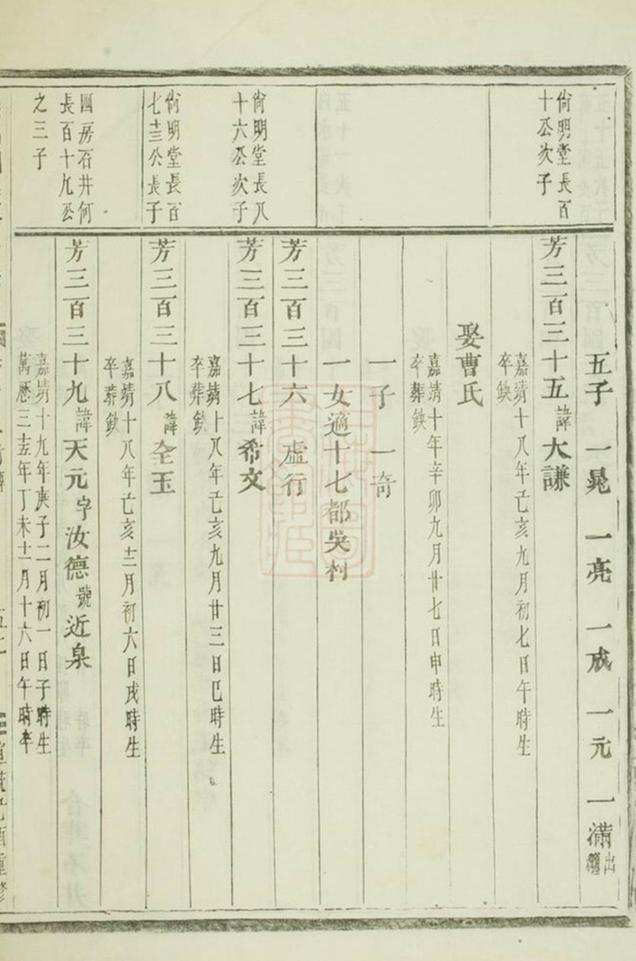 五子 一晃 一亮 一戒 一元 一滿 出繼
尙明堂長百
十公次子
芳三百三十五 諱大謙
嘉靖十八年己亥九月初七日午時生
卒葬缺
娶曹氏
嘉靖十年辛卯九月廿七日申時生
卒葬缺
一子 一奇
一女適十七都吳村
芳三百三十六 虛行
尙明堂長八
十六公次子
芳三百三十七 諱希文
嘉靖十八年己亥九月廿三日巳時生
卒葬缺
尙明堂長百
七十三公長子
芳三百三十八 諱全玉
嘉靖十八年己亥十二月初六日戌時生
卒葬缺
四房石井何
長百十九公
之三子
芳三百三十九 諱天元字汝德號近泉
嘉靖十九年庚子二月初一日子時生
萬曆三十五年丁未十一月十六日午時卒